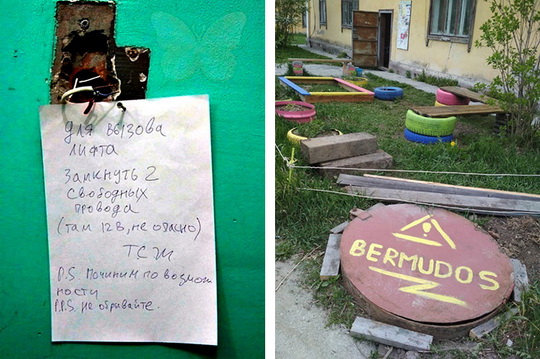 Для вызова
лифта
Замкнуть 2
свободных
провода
(там 12В, не опасно)
ТСЖ
P.S. Починим по возмож
ности
P.P.S. не обрывайте.
!
BERMUDOS